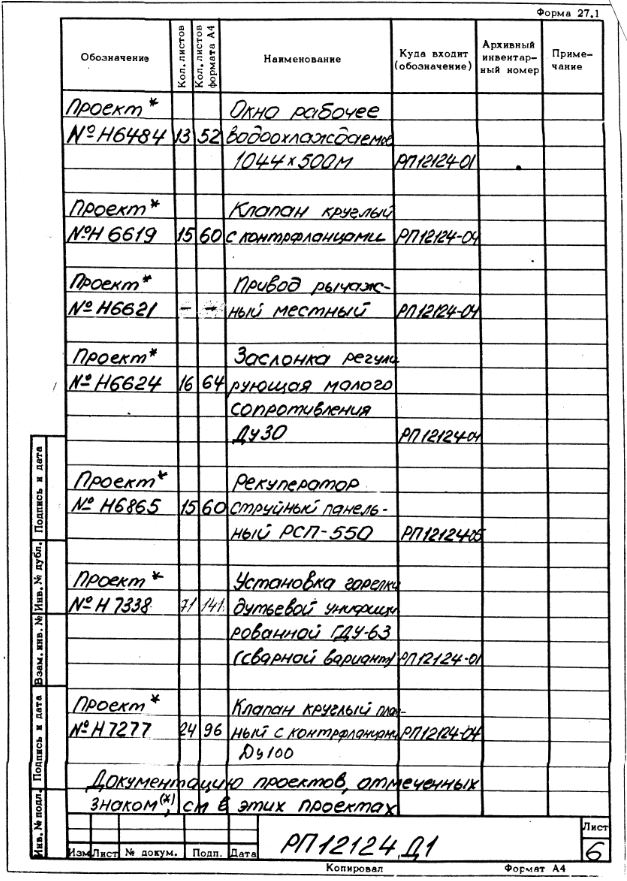 Форма 27.1
Обозначение Кол. листов Кол. листов формата А4 Наименование Куда входит (обозначение) Архивный инвентар- ный номер Приме- чание
Проект* Окно рабочее
№ Н6484 13 52 водоохлаждаемое
1044х500м РП12124-01
Проект* Клапан круглый
№Н 6619 15 60 с контрфланцами РП12124-04
Проект* Привод рычаж-
№ Н6621 – – ный местный РП12124-04
Проект* Заслонка регули
№ Н6624 16 64 рующая малого
сопротивления
Ду30 РП12124-04
Проект* Рекуператор
№ Н6865 15 60 струйный панель-
ный РСП-550 РП12124-05
Проект* Установка горелки
№ Н 7338 71 141 дутьевой унифици
рованной ГДУ-63
(сварной вариант) РП12124-01
Проект* Клапан круглый
№ Н 7277 24 96 ный с контрфланцами РП12124-04
Ду100
Документацию проектов, отмеченных
знаком (*), см в этих проектах
Инв. № подл. Подпись и дата Взам. инв. № Инв. № дубл. Подпись и дата
РП12124 Д1
Лист
6
Изм Лист № докум. Подп. Дата
Копировал Формат А4